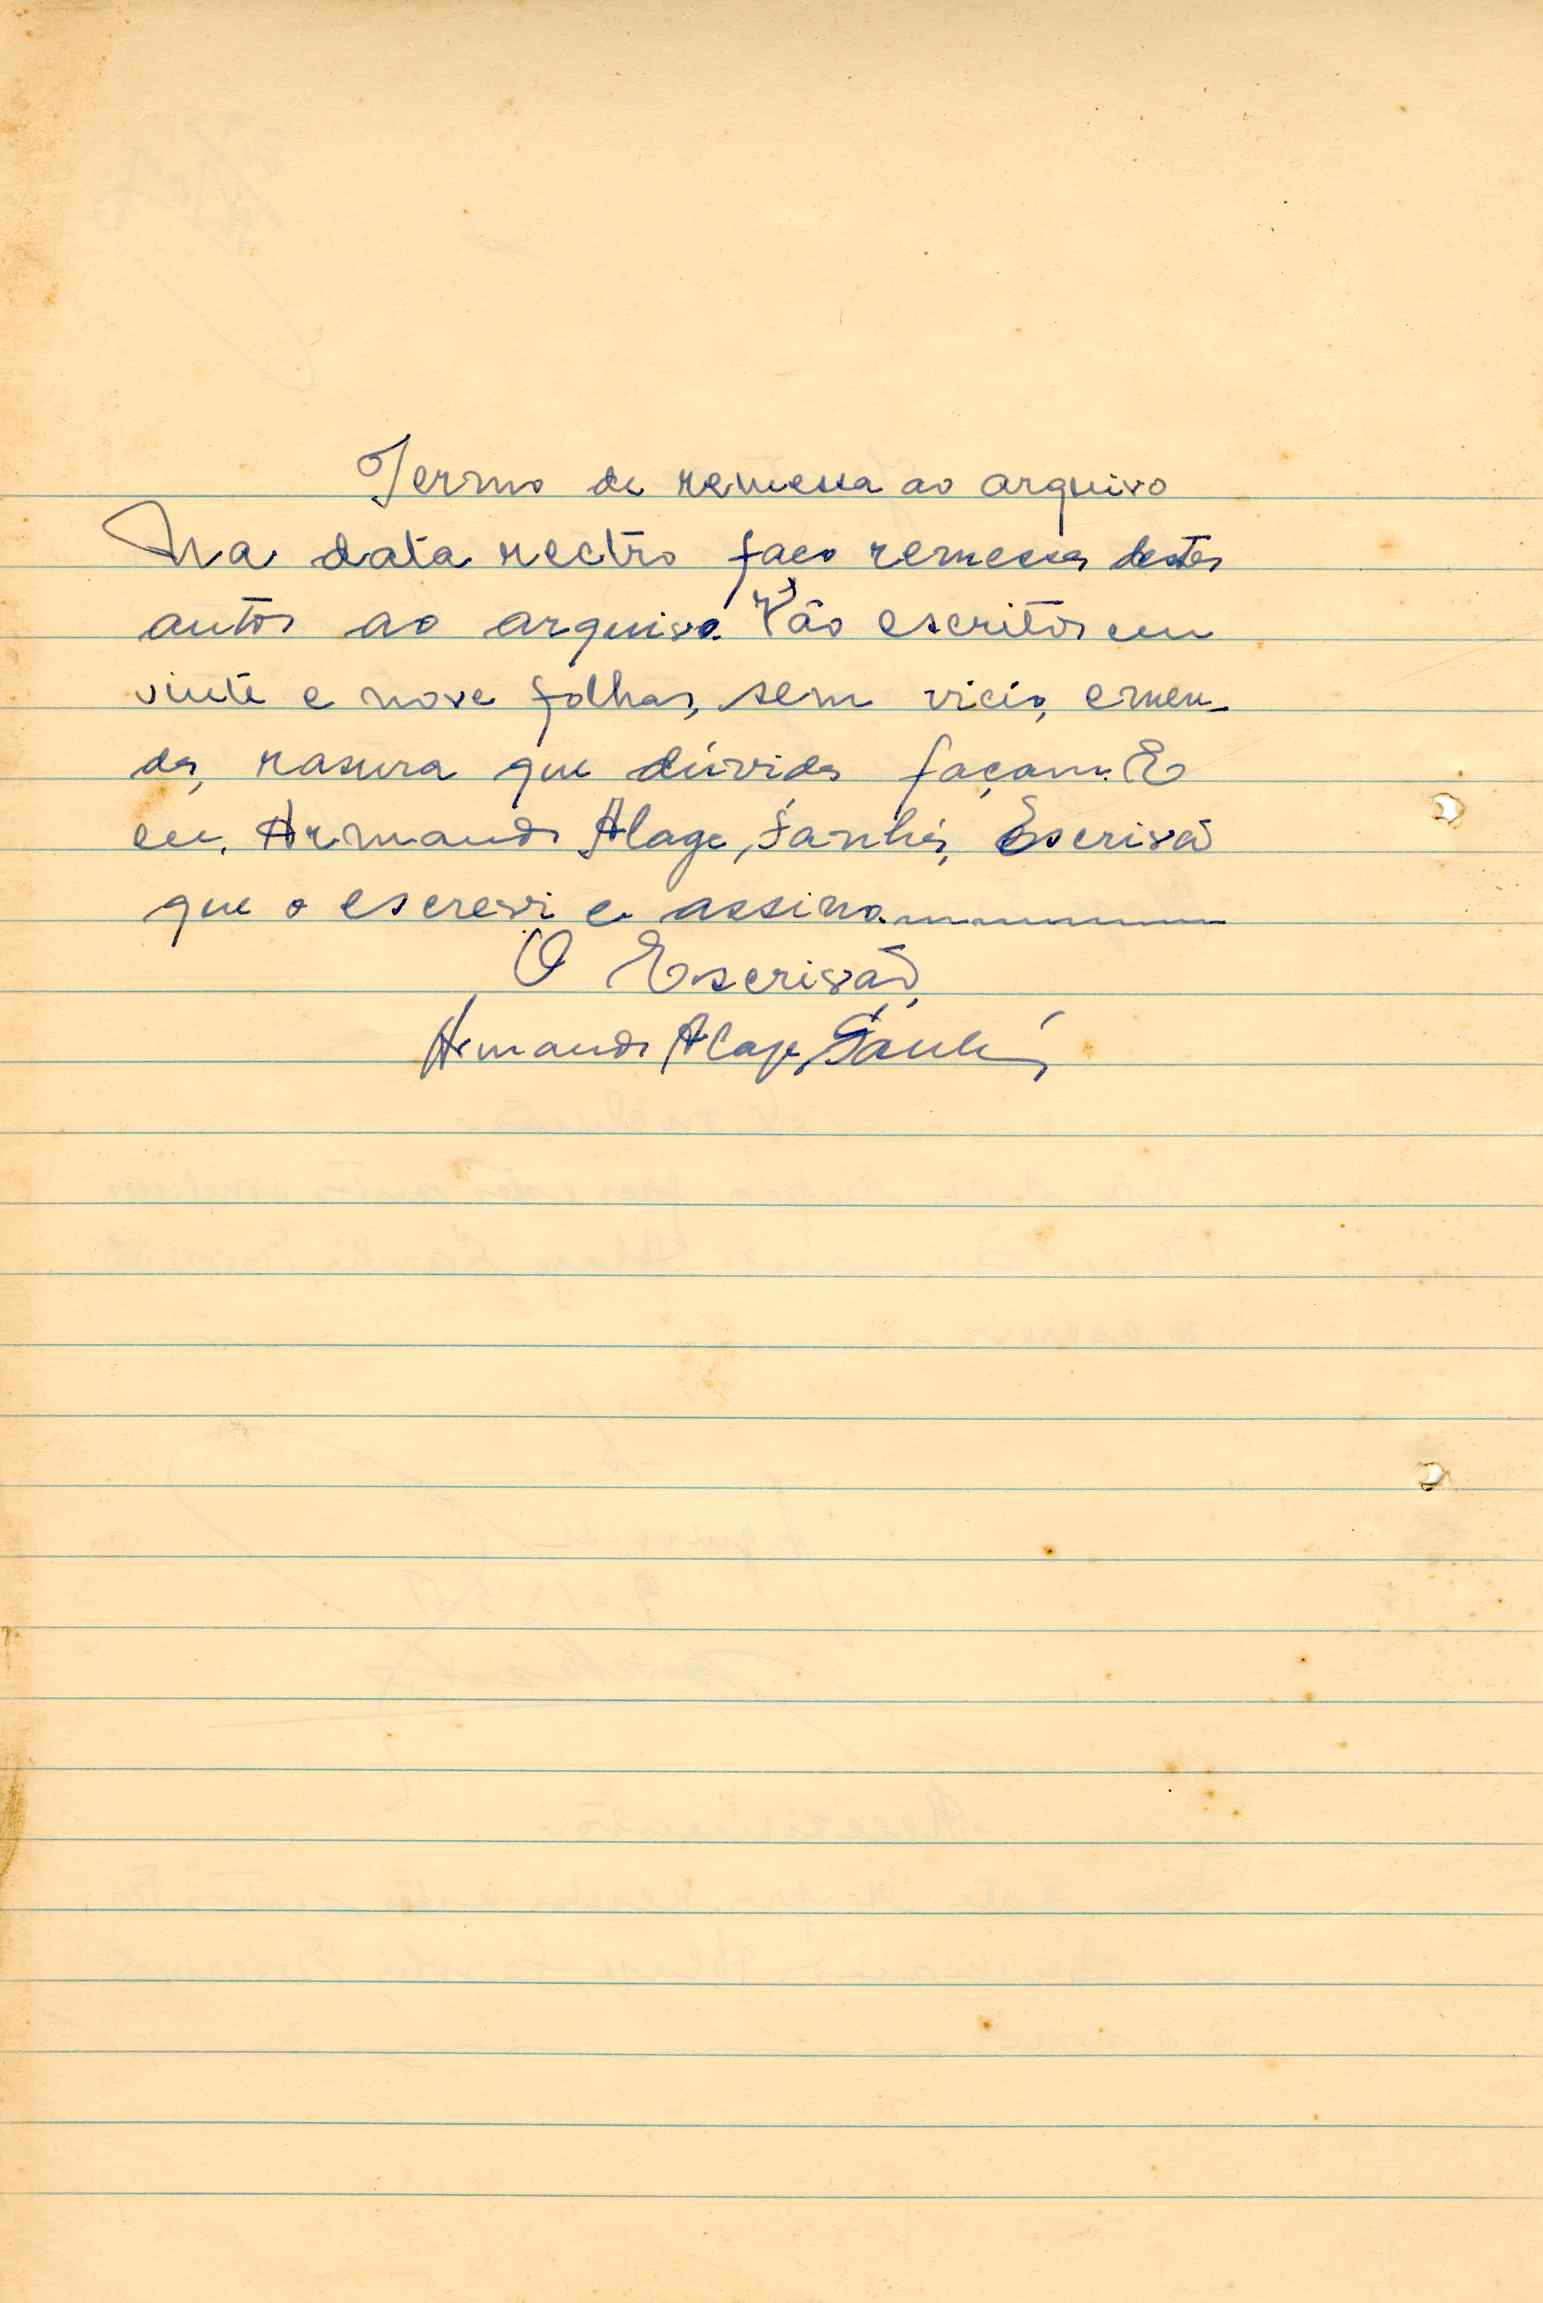 Termo de remessa ao arquivo
Na data rectro faço remessa destes
autos ao arquivo. Vão escritos em
vinte e nove folhas, sem vicio, emen-
da, rasura que dúvida façam. E
eu, Armando Alage, Sanhá, Escrivã
que o escrevi e assino.
O Escrivão,
Armando Alage, Sanhá,